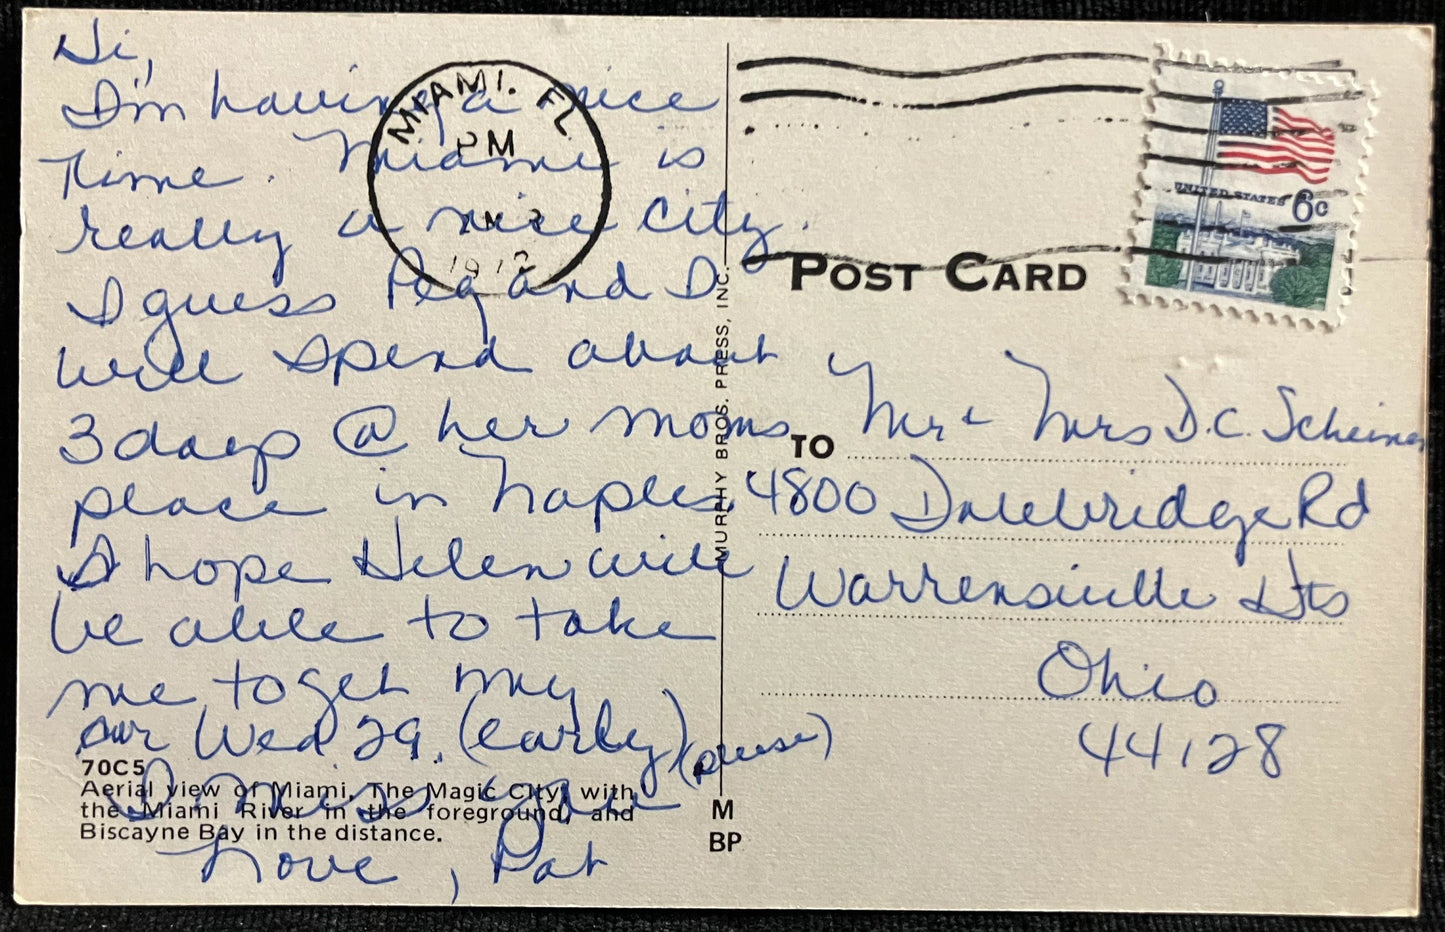 Hi,
I'm having a nice
time. Miami is
really a nice city.
I guess Peg and I
will spend about
3 days @ her moms
place in Naples.
I hope Helen will
be able to take
me to get my
car Wed 29. (early) (please)
I miss you
Love, Pat
70C5
Aerial view of Miami, The Magic City, with
the Miami River in the foreground, and
Biscayne Bay in the distance.
MIAMI, FL
PM
197
MURPHY BROS. PRESS, INC.
M
BP
UNITED STATES 6c
POST CARD
TO Mr & Mrs D.C. Scheiner
4800 Dalebridge Rd
Warrensville Hts
Ohio
44128